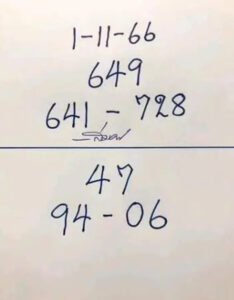 1-11-66
649
641 - 728
47
94 - 06